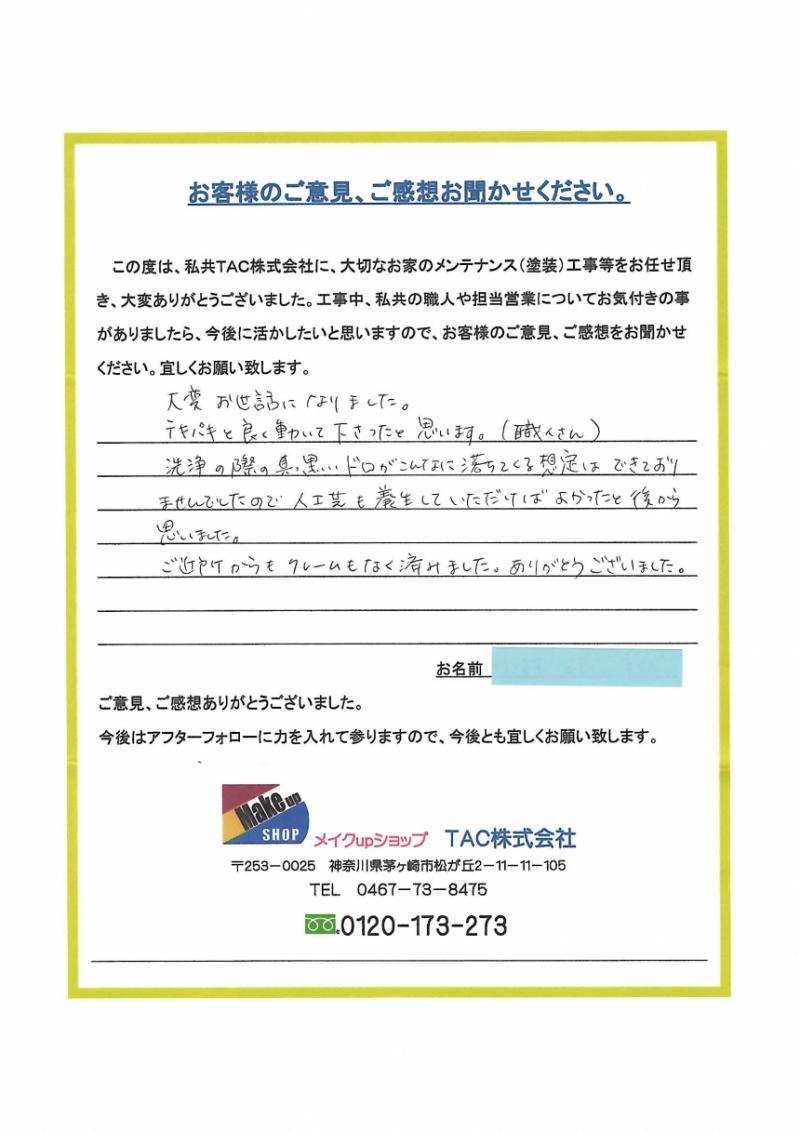 お客様のご意見、ご感想お聞かせください。
この度は、私共TAC株式会社に、大切なお家のメンテナンス（塗装）工事等をお任せ頂
き、大変ありがとうございました。工事中、私共の職人や担当営業についてお気付きの事
がありましたら、今後に活かしたいと思いますので、お客様のご意見、ご感想をお聞かせ
ください。宜しくお願い致します。
大変お世話になりました。
テキパキと良く動いて下さったと思います。（職人さん）
洗浄の際の真っ黒いドロがこんなに落ちてくる想定はできており
ませんでしたので人工芝も養生していただければよかったと後から
思いました。
ご近所からもクレームもなく済みました。ありがとうございました。
お名前
ご意見、ご感想ありがとうございました。
今後はアフターフォローに力を入れて参りますので、今後とも宜しくお願い致します。
Make up
SHOP
メイクupショップ TAC株式会社
〒253－0025 神奈川県茅ヶ崎市松が丘2－11－11－105
TEL 0467－73－8475
0120-173-273